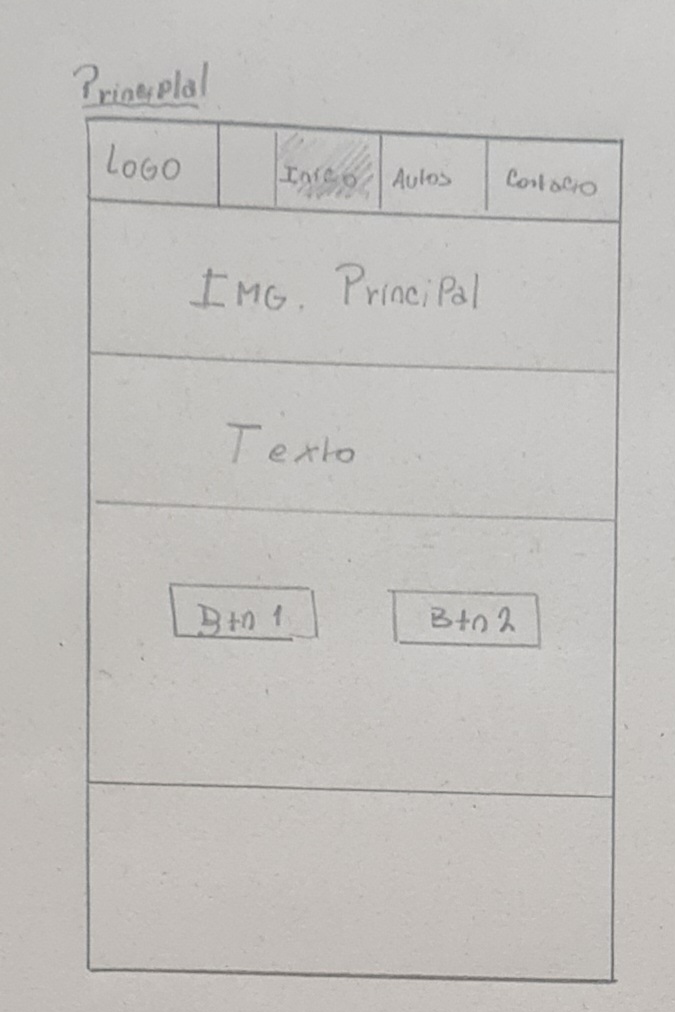 Principlal
LOGO Inicio Autos Contacto
IMG. Principal
Texto
Btn 1 Btn 2